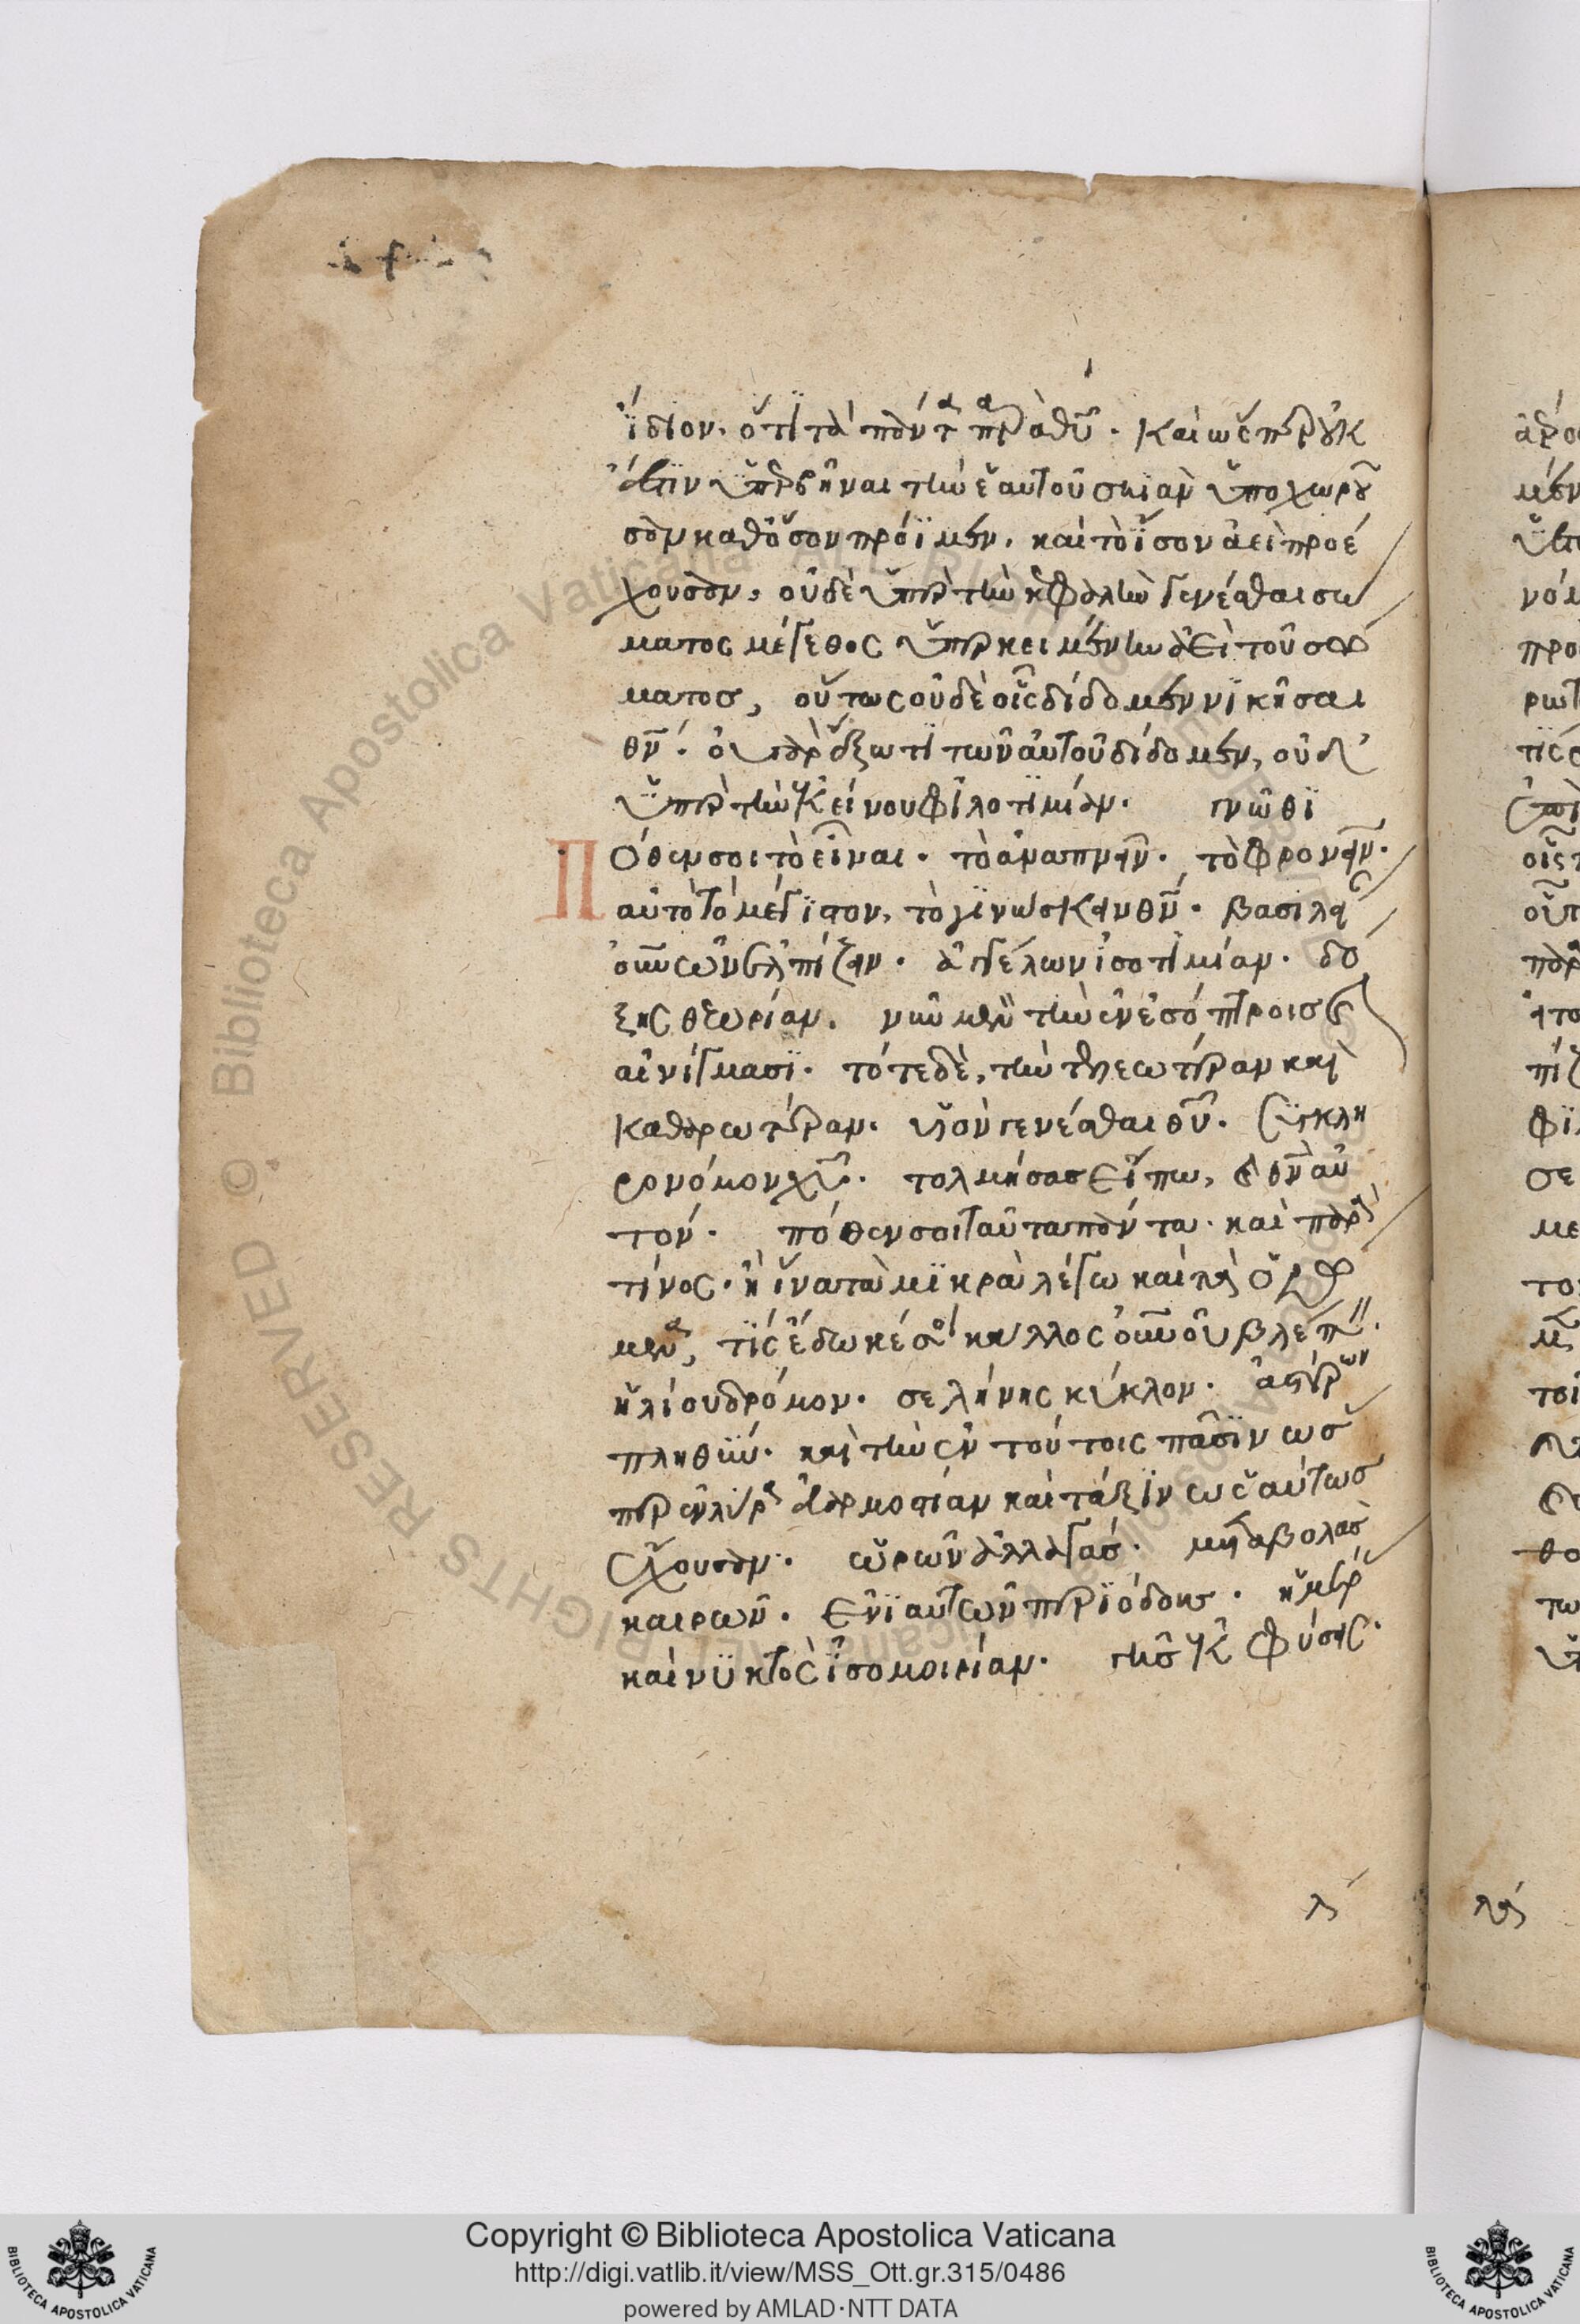 ἴδιον. ὅτι τὰ πάντα παρὰ θῦ. καὶ ὥσπερ οὐκ
ἔστιν ὑπερβῆναι τὴν ἑαυτοῦ σκιὰν ὑποχωροῦ
σαν καθ' ὅσον πρόϊμεν. καὶ τὸ ἴσον ἀεὶ προέ
χουσαν, οὐδὲ ὑπὲρ τὴν κεφαλὴν γενέσθαι σώ
ματος μέγεθος ὑπερκειμένην ἀεὶ τοῦ σώ
ματος, οὕτως οὐδὲ οἷς δίδομεν νικῆσαι
θν. οὐ γὰρ ἔξω τι τῶν αὐτοῦ δίδομεν, οὐδ'
ὑπὲρ τὴν ἐκείνου φιλοτιμίαν. γνῶθι
Πόθεν σοι τὸ εἶναι. τὸ ἀναπνεῖν. τὸ φρονεῖν.
αὐτὸ τὸ μέγιστον, τὸ γινώσκειν θν. βασιλεί
ουνῶν ἐλπίζειν. ἀγγέλων ἰσοτιμίαν. δό
ξης θεωρίαν. νῦν μὲν τὴν ἐν ἐσόπτροις καὶ
αἰνίγμασι. τότε δὲ, τὴν τελεωτέραν καὶ
καθαρωτέραν. υἱὸν γενέσθαι θῦ. συγκλη
ρονόμον χῦ. τολμήσας εἴπω, καὶ θν αὐ
τόν. πόθεν σοι ταῦτα πάντα. καὶ παρὰ
τίνος. ἢ ἵνα τὰ μικρὰ λέγω καὶ τὰ ὁρώ
μενα, τίς ἔδωκέ σοι κάλλος οὐνοῦ βλέπειν.
ἡλίου δρόμον. σελήνης κύκλον. ἀστέρων
πληθύν. καὶ τὴν ἐν τούτοις πᾶσιν ὥσ
περ ἐν λύρα ἁρμονίαν καὶ τάξιν ὡσαύτως
ἔχουσαν. ὡρῶν ἀλλαγάς. μεταβολὰς
καιρῶν. ἐνιαυτῶν περιόδους. ἡμέρας
καὶ νυκτὸς ἰσομοιρίαν. γῆς ἐκφύσεις.
Copyright © Biblioteca Apostolica Vaticana
http://digi.vatlib.it/view/MSS_Ott.gr.315/0486
powered by AMLAD·NTT DATA